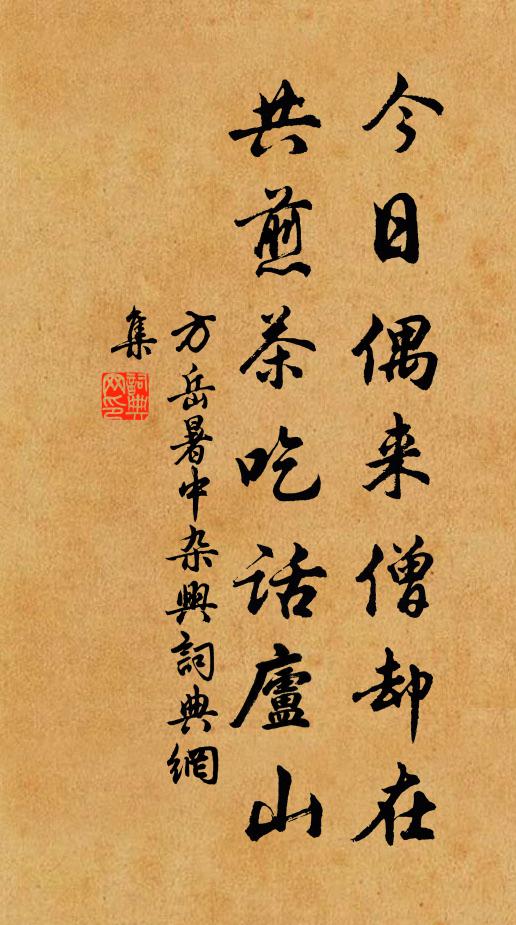 今日偶来僧却在
共煎茶吃话廬山
方岳暑中杂興詞典網
集
詞典网印